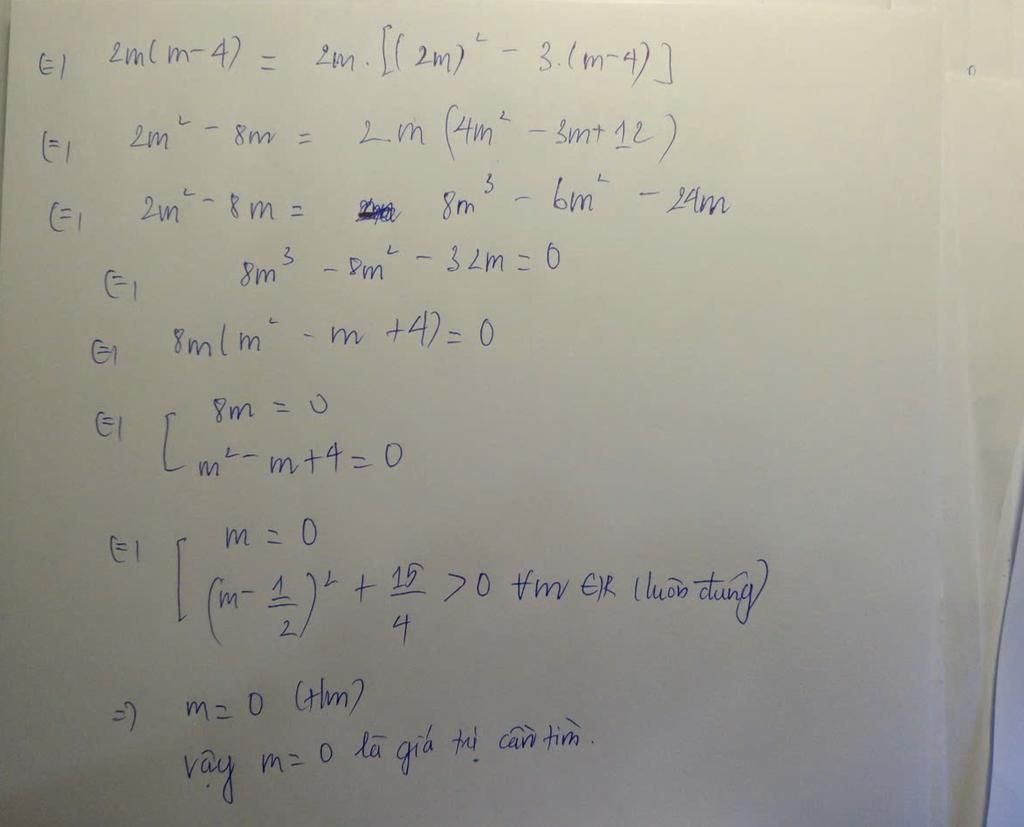 ⇔ 2m(m-4) = 2m.[(2m)² - 3.(m-4)]
⇔ 2m² - 8m = 2m(4m² - 3m+12)
⇔ 2m² - 8m = 8m³ - 6m² - 24m
⇔ 8m³ - 8m² - 32m = 0
⇔ 8m(m² - m +4) = 0
⇔ [ 8m = 0
m² - m+4 = 0
⇔ [ m = 0
(m - 1/2)² + 15/4 > 0 ∀m ∈ R (luôn đúng)
=> m = 0 (t/m)
vậy m = 0 là giá trị cần tìm.